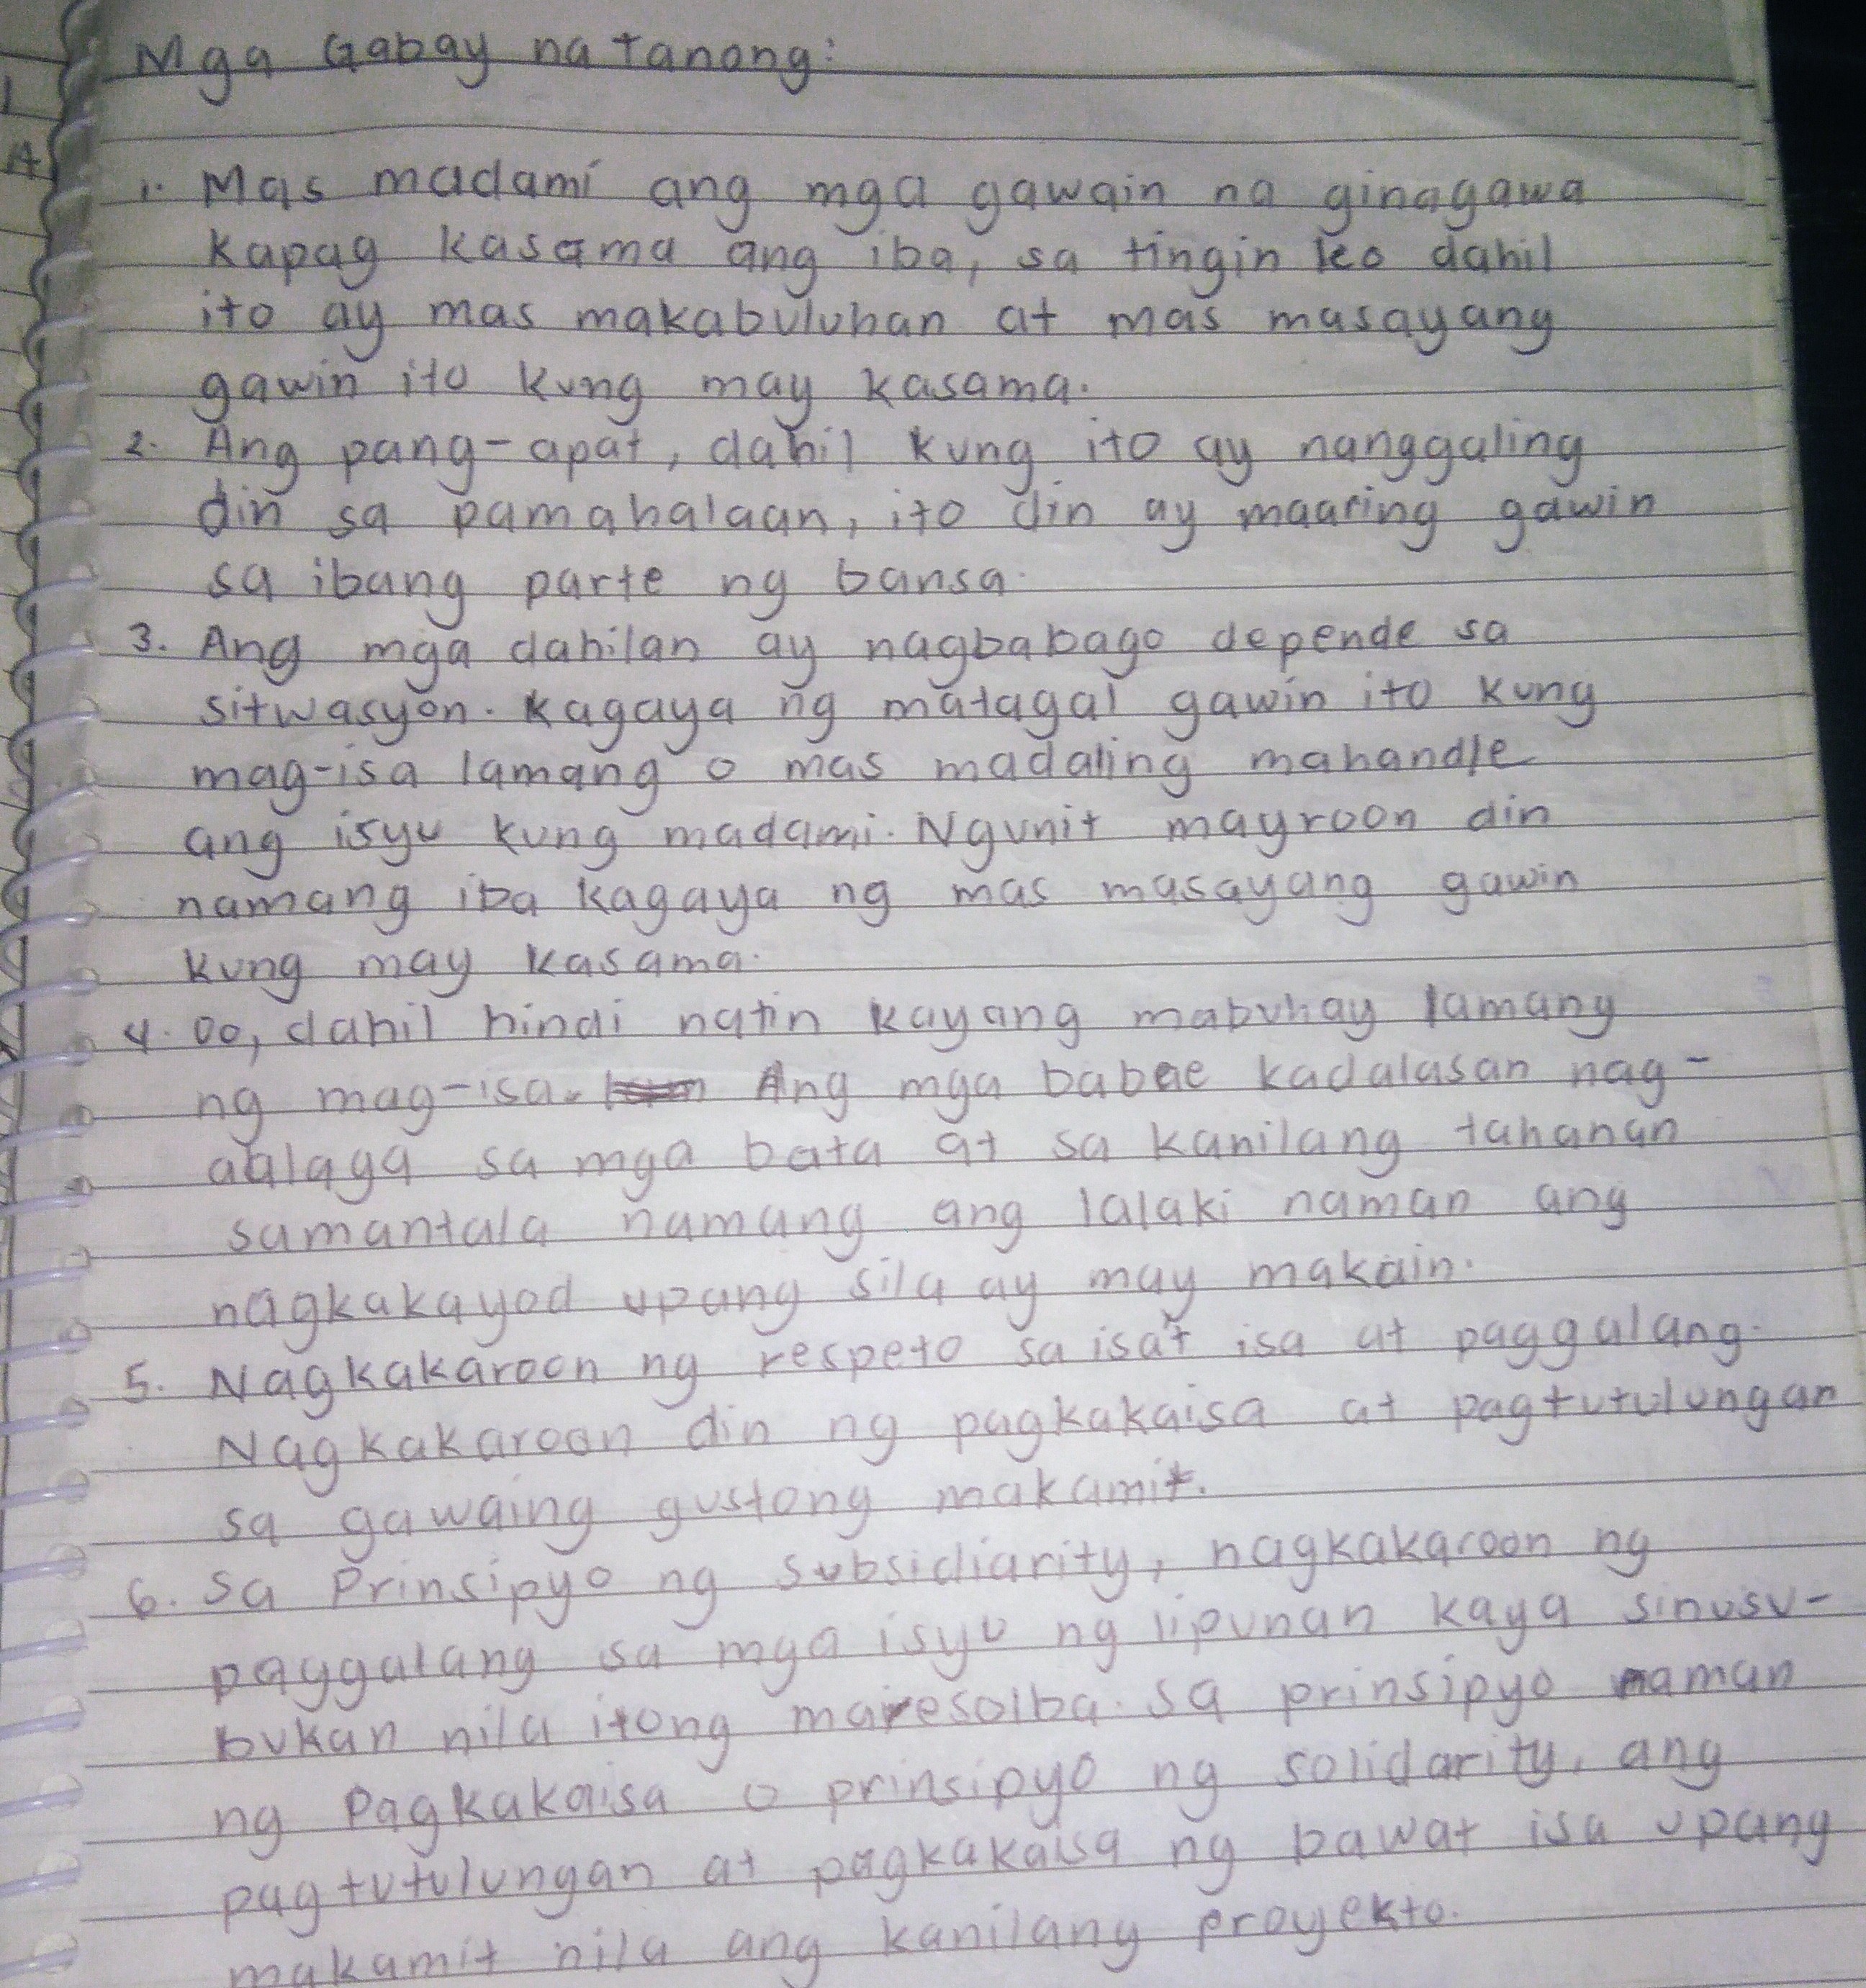 Mga Gabay na tanong:
1. Mas madami ang mga gawain na ginagawa
kapag kasama ang iba, sa tingin ko dahil
ito ay mas makabuluhan at mas masayang
gawin ito kung may kasama.
2. Ang pang-apat, dahil kung ito ay nanggaling
din sa pamahalaan, ito din ay maaring gawin
sa ibang parte ng bansa.
3. Ang mga dahilan ay nagbabago depende sa
sitwasyon. Kagaya ng matagal gawin ito kung
mag-isa lamang o mas madaling mahandle
ang isyu kung madami. Ngunit mayroon din
namang iba kagaya ng mas masayang gawin
kung may kasama.
4. Oo, dahil hindi natin kayang mabuhay lamang
ng mag-isa. Ang mga babae kadalasan nag-
aalaga sa mga bata at sa kanilang tahanan
samantala namang ang lalaki naman ang
nagkakayod upang sila ay may makain.
5. Nagkakaroon ng respeto sa isa't isa at paggalang.
Nagkakaroon din ng pagkakaisa at pagtutulungan
sa gawaing gustong makamit.
6. Sa Prinsipyo ng Subsidiarity, nagkakaroon ng
paggalang sa mga isyu ng lipunan kaya sinusu-
bukan nila itong maresolba. Sa prinsipyo naman
ng Pagkakaisa o prinsipyo ng solidarity, ang
pagtutulungan at pagkakaisa ng bawat isa upang
makamit nila ang kanilang proyekto.